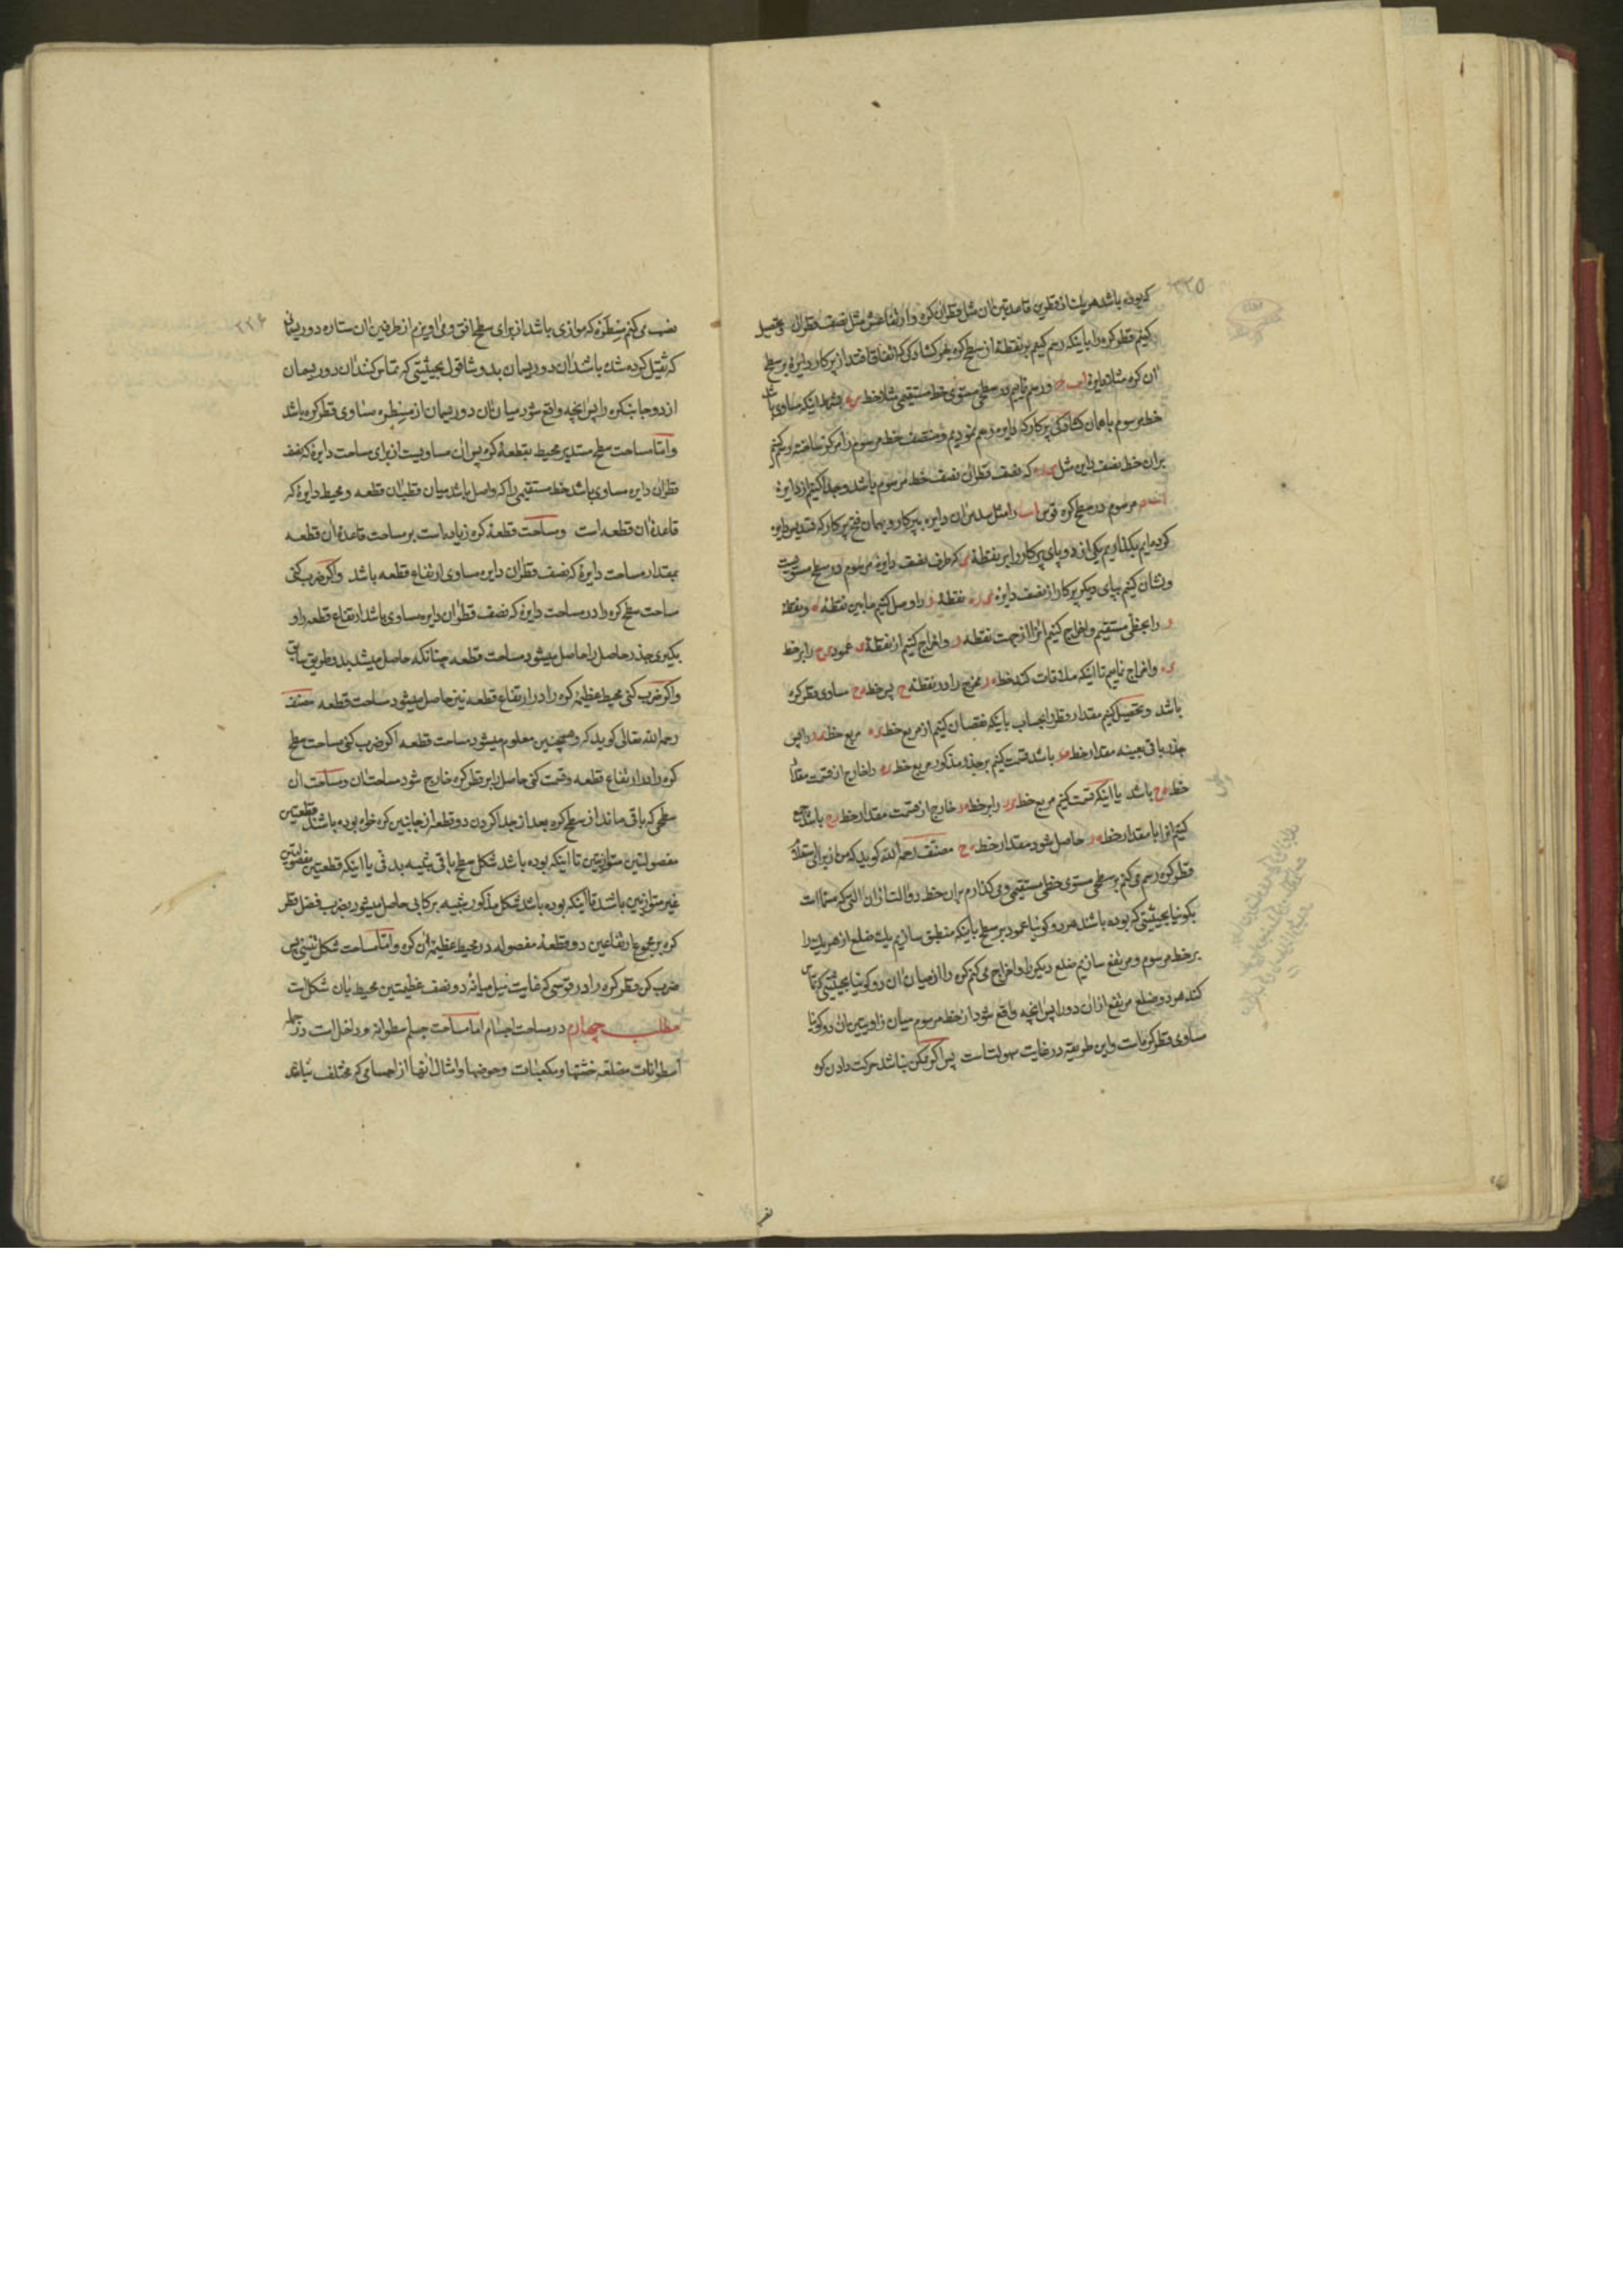 ۲۲۵
که بوده باشد هر یک از قطرین قاعدتین آن مثل قطر آن کره و ارتفاعش مثل نصف قطر آن و تحصیل
کنیم قطر کره را باینکه رسم کنیم بر نقطهٔ از سطح کره بهر کشادگی که اتفاق افتد از پرکار دایرهٔ بر سطح
آن کره مثلا دایرهٔ و رسم نمائیم در سطح مستوی خط مستقیمی مثلا خط بشرط اینکه مساوی باشد
خط مرسوم با همان کشادگی پرکار که دایره رسم نمودیم و منتصف خط مرسوم را مرکز ساخته رسم کنیم
بران خط نصف دایره مثل که نصف قطر آن نصف خط مرسوم باشد و جدا کنیم از دایرهٔ
مرسوم در سطح کره قوس اب را مثل سدس آن دایره بپرکار و بهمان فتح پرکار که سدس دایره
کرده‌ایم بگذاریم یکی از دو پای پرکار را بر نقطهٔ ی که طرف نصف دایرهٔ مرسوم در سطح مستویست
و نشان کنیم بپای دیگر پرکار از نصف دایرهٔ نقطهٔ ر را و وصل کنیم مابین نقطهٔ ه و نقطهٔ
ر را بخطی مستقیم و اخراج کنیم آنرا از جهت نقطهٔ ر و اخراج کنیم از نقطهٔ ی عمود ی ح را بر خط
ی ه و اخراج نمائیم تا اینکه ملاقات کند خط ه ر مخرج را در نقطهٔ ح پس خط ه ح مساوی قطر کره
باشد و تحصیل کنیم مقدار قطر را بحساب باینکه نقصان کنیم از مربع خط ی ه مربع خط ی ر را پس
جذر باقی بعینه مقدار خط ه ر باشد قسمت کنیم بر جذر مذکور مربع خط ی ه را خارج از قسمت مقدار
خط ه ح باشد یا اینکه قسمت کنیم مربع خط ی ر را بر خط ه ر خارج از قسمت مقدار خط ر ح باشد جمع
کنیم آنرا با مقدار خط ه ر حاصل شود مقدار خط ه ح مصنف رحمه الله گوید که من از برای استعلام
قطر کره رسم می‌کنم بر سطحی مستوی خطی مستقیمی و می‌گذارم بران خط دو آلت از آن آلتی که مسماست
بگونیا بحیثیتی که بوده باشد هر دو گونیا عمود بر سطح باینکه منطبق سازیم یک ضلع از هر یک را
بر خط مرسوم و مرتفع سازیم ضلع دیگر را و اخراج می‌کنم کره را از میان آن دو گونیا بحیثیتی که تماس
کند هر دو ضلع مرتفع از آن دو را پس آنچه واقع شود از خط مرسوم میان زاویتین آن دو گونیا
مساوی قطر کره است و این طریقه در غایت سهولت است پس اگر ممکن نباشد حرکت دادن کره
۲۲۶
نصب می‌کنم مسطره که موازی باشد از برای سطح افق و می‌آویزم از طرفین آن ستاره دو ریسمانی
که ثقیل کرده شده باشد آن دو ریسمان بدو شاقول بحیثیتی که تماس کند آن دو ریسمان
از دو جانب کره را پس آنچه واقع شود میان آن دو ریسمان از مسطره مساوی قطر کره باشد
و اما مساحت سطح مستدیر محیط بقطعهٔ کره پس آن مساویست از برای مساحت دایرهٔ که نصف
قطر آن دایره مساوی باشد خط مستقیمی را که واصل باشد میان قطب آن قطعه و محیط دایرهٔ که
قاعدهٔ آن قطعه است و مساحت قطعهٔ کره زیاد است بر مساحت قاعدهٔ آن قطعه
بمقدار مساحت دایرهٔ که نصف قطر آن دایره مساوی ارتفاع قطعه باشد و اگر ضرب کنی
مساحت سطح کره را در مساحت دایرهٔ که نصف قطر آن دایره مساوی باشد ارتفاع قطعه را و
بگیری جذر حاصل را حاصل میشود مساحت قطعه چنانکه حاصل میشد بدو طریق سابق
و اگر ضرب کنی محیط عظیمهٔ کره را در ارتفاع قطعه نیز حاصل میشود مساحت قطعه مصنف
رحمه الله تعالی گوید که و همچنین معلوم میشود مساحت قطعه اگر ضرب کنی مساحت سطح
کره را در ارتفاع قطعه و قسمت کنی حاصل را بر قطر کره خارج شود مساحت آن و مساحت آن
سطحی که باقی ماند از سطح کره بعد از جدا کردن دو قطعه از جانبین کره خواه بوده باشند قطعتین
مفصولتین متوازیتین تا اینکه بوده باشد شکل سطح باقی شبیه بدفی یا اینکه قطعتین مفصولتین
غیر متوازیتین باشد تا اینکه بوده باشد شکل مذکور شبیه برکابی حاصل میشود بضرب فضل قطر
کره بر مجموع ارتفاعین دو قطعهٔ مفصوله در محیط عظیمهٔ آن کره و اما مساحت شکل تنینی پس
ضرب کن قطر کره را در قوسی که غایت میل میانهٔ دو نصف عظیمتین محیط بآن شکل است
مطلب چهارم در مساحت اجسام اما مساحت جسم اسطوانه و داخل است در جمله
اسطوانات مضلعه خشتها و مکعبات و حوضها و امثال آنها از اجسامی که مختلف نباشد